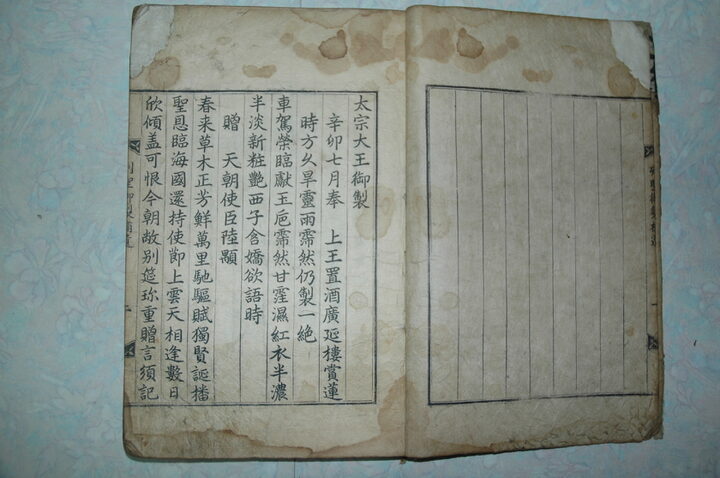 太宗大王御製
辛卯七月奉　上王置酒廣延樓賞蓮
時方久旱靈雨霈然仍製一絶
車駕榮臨獻玉卮霈然甘霔濕紅衣半濃
半淡新粧艶西子含嬌欲語時
贈　天朝使臣陸顒
春来草木正芳鮮萬里馳驅賦獨賢誕播
聖恩臨海國還持使節上雲天相逢數日
欣傾盖可恨今朝敞別筵珎重贈言須記
列聖御製